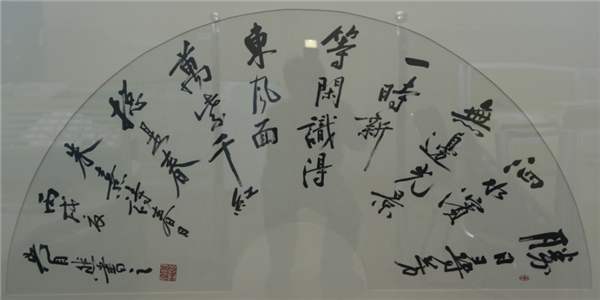 勝日尋芳
泗水濱
無邊光景
一時新
等閑識得
東風面
萬紫千紅
總是春
朱熹詩春日
丙戌
書